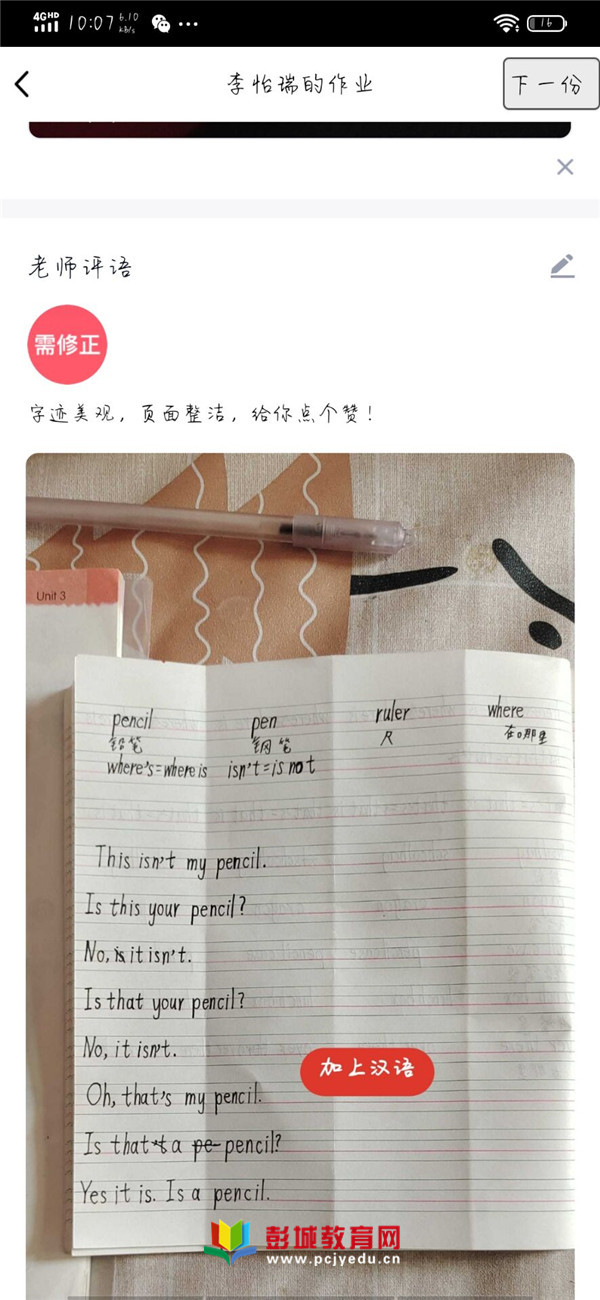 4GHD 10:07 6.10 kB/s 16
李怡瑞的作业 下一份
老师评语
需修正
字迹美观，页面整洁，给你点个赞！
Unit 3
pencil pen ruler where
铅笔 钢笔 尺 在哪里
where's=where is isn't=is not
This isn't my pencil.
Is this your pencil?
No, it isn't.
Is that your pencil?
No, it isn't.
加上汉语
Oh, that's my pencil.
Is that a pencil?
Yes it is. Is a pencil.
彭城教育网
www.pcjyedu.cn